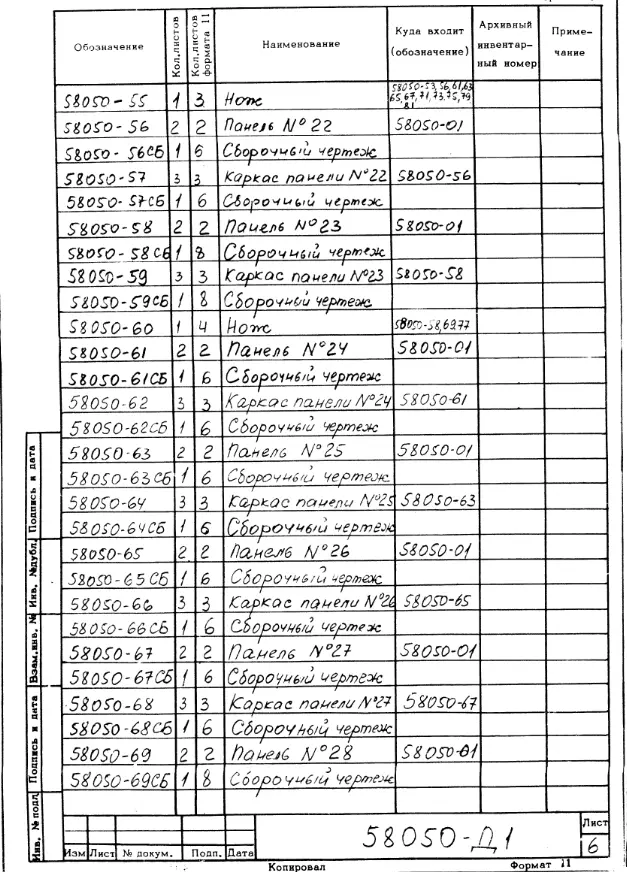 Обозначение | Кол.листов | Кол.листов формата 11 | Наименование | Куда входит (обозначение) | Архивный инвентар-ный номер | Приме-чание
58050-55 | 1 | 3 | Нож | 58050-53,56,61,63 65,67,71,73,75,79 81
58050-56 | 2 | 2 | Панель N°22 | 58050-01
58050-56СБ | 1 | 6 | Сборочный чертеж
58050-57 | 3 | 3 | Каркас панели N°22 | 58050-56
58050-57СБ | 1 | 6 | Сборочный чертеж
58050-58 | 2 | 2 | Панель N°23 | 58050-01
58050-58СБ | 1 | 8 | Сборочный чертеж
58050-59 | 3 | 3 | Каркас панели N°23 | 58050-58
58050-59СБ | 1 | 8 | Сборочный чертеж
58050-60 | 1 | 4 | Нож | 58050-58,69,77
58050-61 | 2 | 2 | Панель N°24 | 58050-01
58050-61СБ | 1 | 6 | Сборочный чертеж
58050-62 | 3 | 3 | Каркас панели N°24 | 58050-61
58050-62СБ | 1 | 6 | Сборочный чертеж
58050-63 | 2 | 2 | Панель N°25 | 58050-01
58050-63СБ | 1 | 6 | Сборочный чертеж
58050-64 | 3 | 3 | Каркас панели N°25 | 58050-63
58050-64СБ | 1 | 6 | Сборочный чертеж
58050-65 | 2 | 2 | Панель N°26 | 58050-01
58050-65СБ | 1 | 6 | Сборочный чертеж
58050-66 | 3 | 3 | Каркас панели N°26 | 58050-65
58050-66СБ | 1 | 6 | Сборочный чертеж
58050-67 | 2 | 2 | Панель N°27 | 58050-01
58050-67СБ | 1 | 6 | Сборочный чертеж
58050-68 | 3 | 3 | Каркас панели N°27 | 58050-67
58050-68СБ | 1 | 6 | Сборочный чертеж
58050-69 | 2 | 2 | Панель N°28 | 58050-01
58050-69СБ | 1 | 8 | Сборочный чертеж
Инв. № подл.
Подпись и дата
Взам.инв. №
Инв. №дубл.
Подпись и дата
58050-Д1
Лист
6
Изм | Лист | № докум. | Подп. | Дата
Копировал
Формат 11